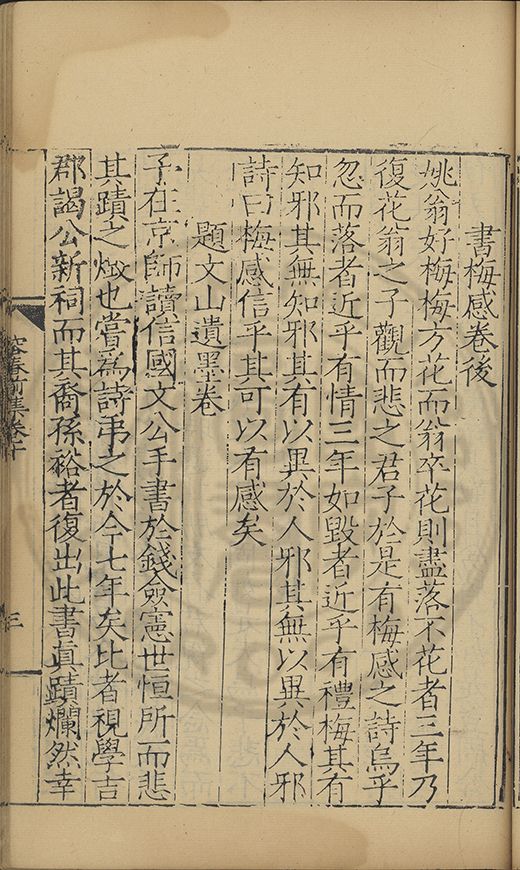 書梅感卷後
姚翁好梅梅方花而翁卒花則盡落不花者三年乃
復花翁之子觀而悲之君子於是有梅感之詩烏乎
忽而落者近乎有情三年如毀者近乎有禮梅其有
知邪其無知邪其有以異於人邪其無以異於人邪
詩曰梅感信乎其可以有感矣
題文山遺墨卷
予在京師讀信國文公手書於錢僉憲世恒所而悲
其蹟之燬也嘗爲詩弔之於今七年矣比者視學吉
郡謁公新祠而其裔孫裕者復出此書眞蹟爛然幸
容春前集卷十
三